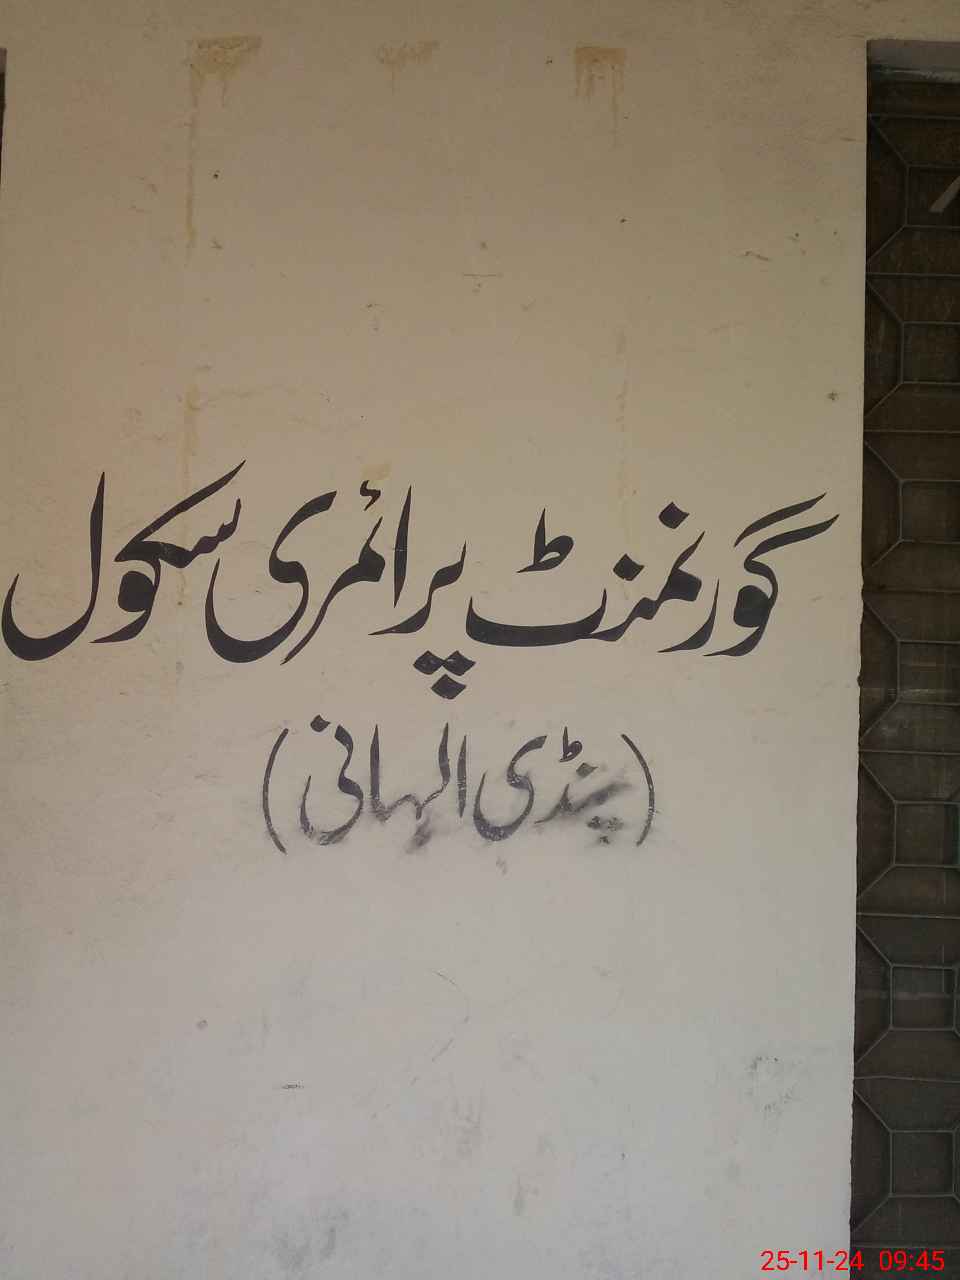 گورنمنٹ پرائمری سکول
(پنڈی الہانی)
25-11-24 09:45